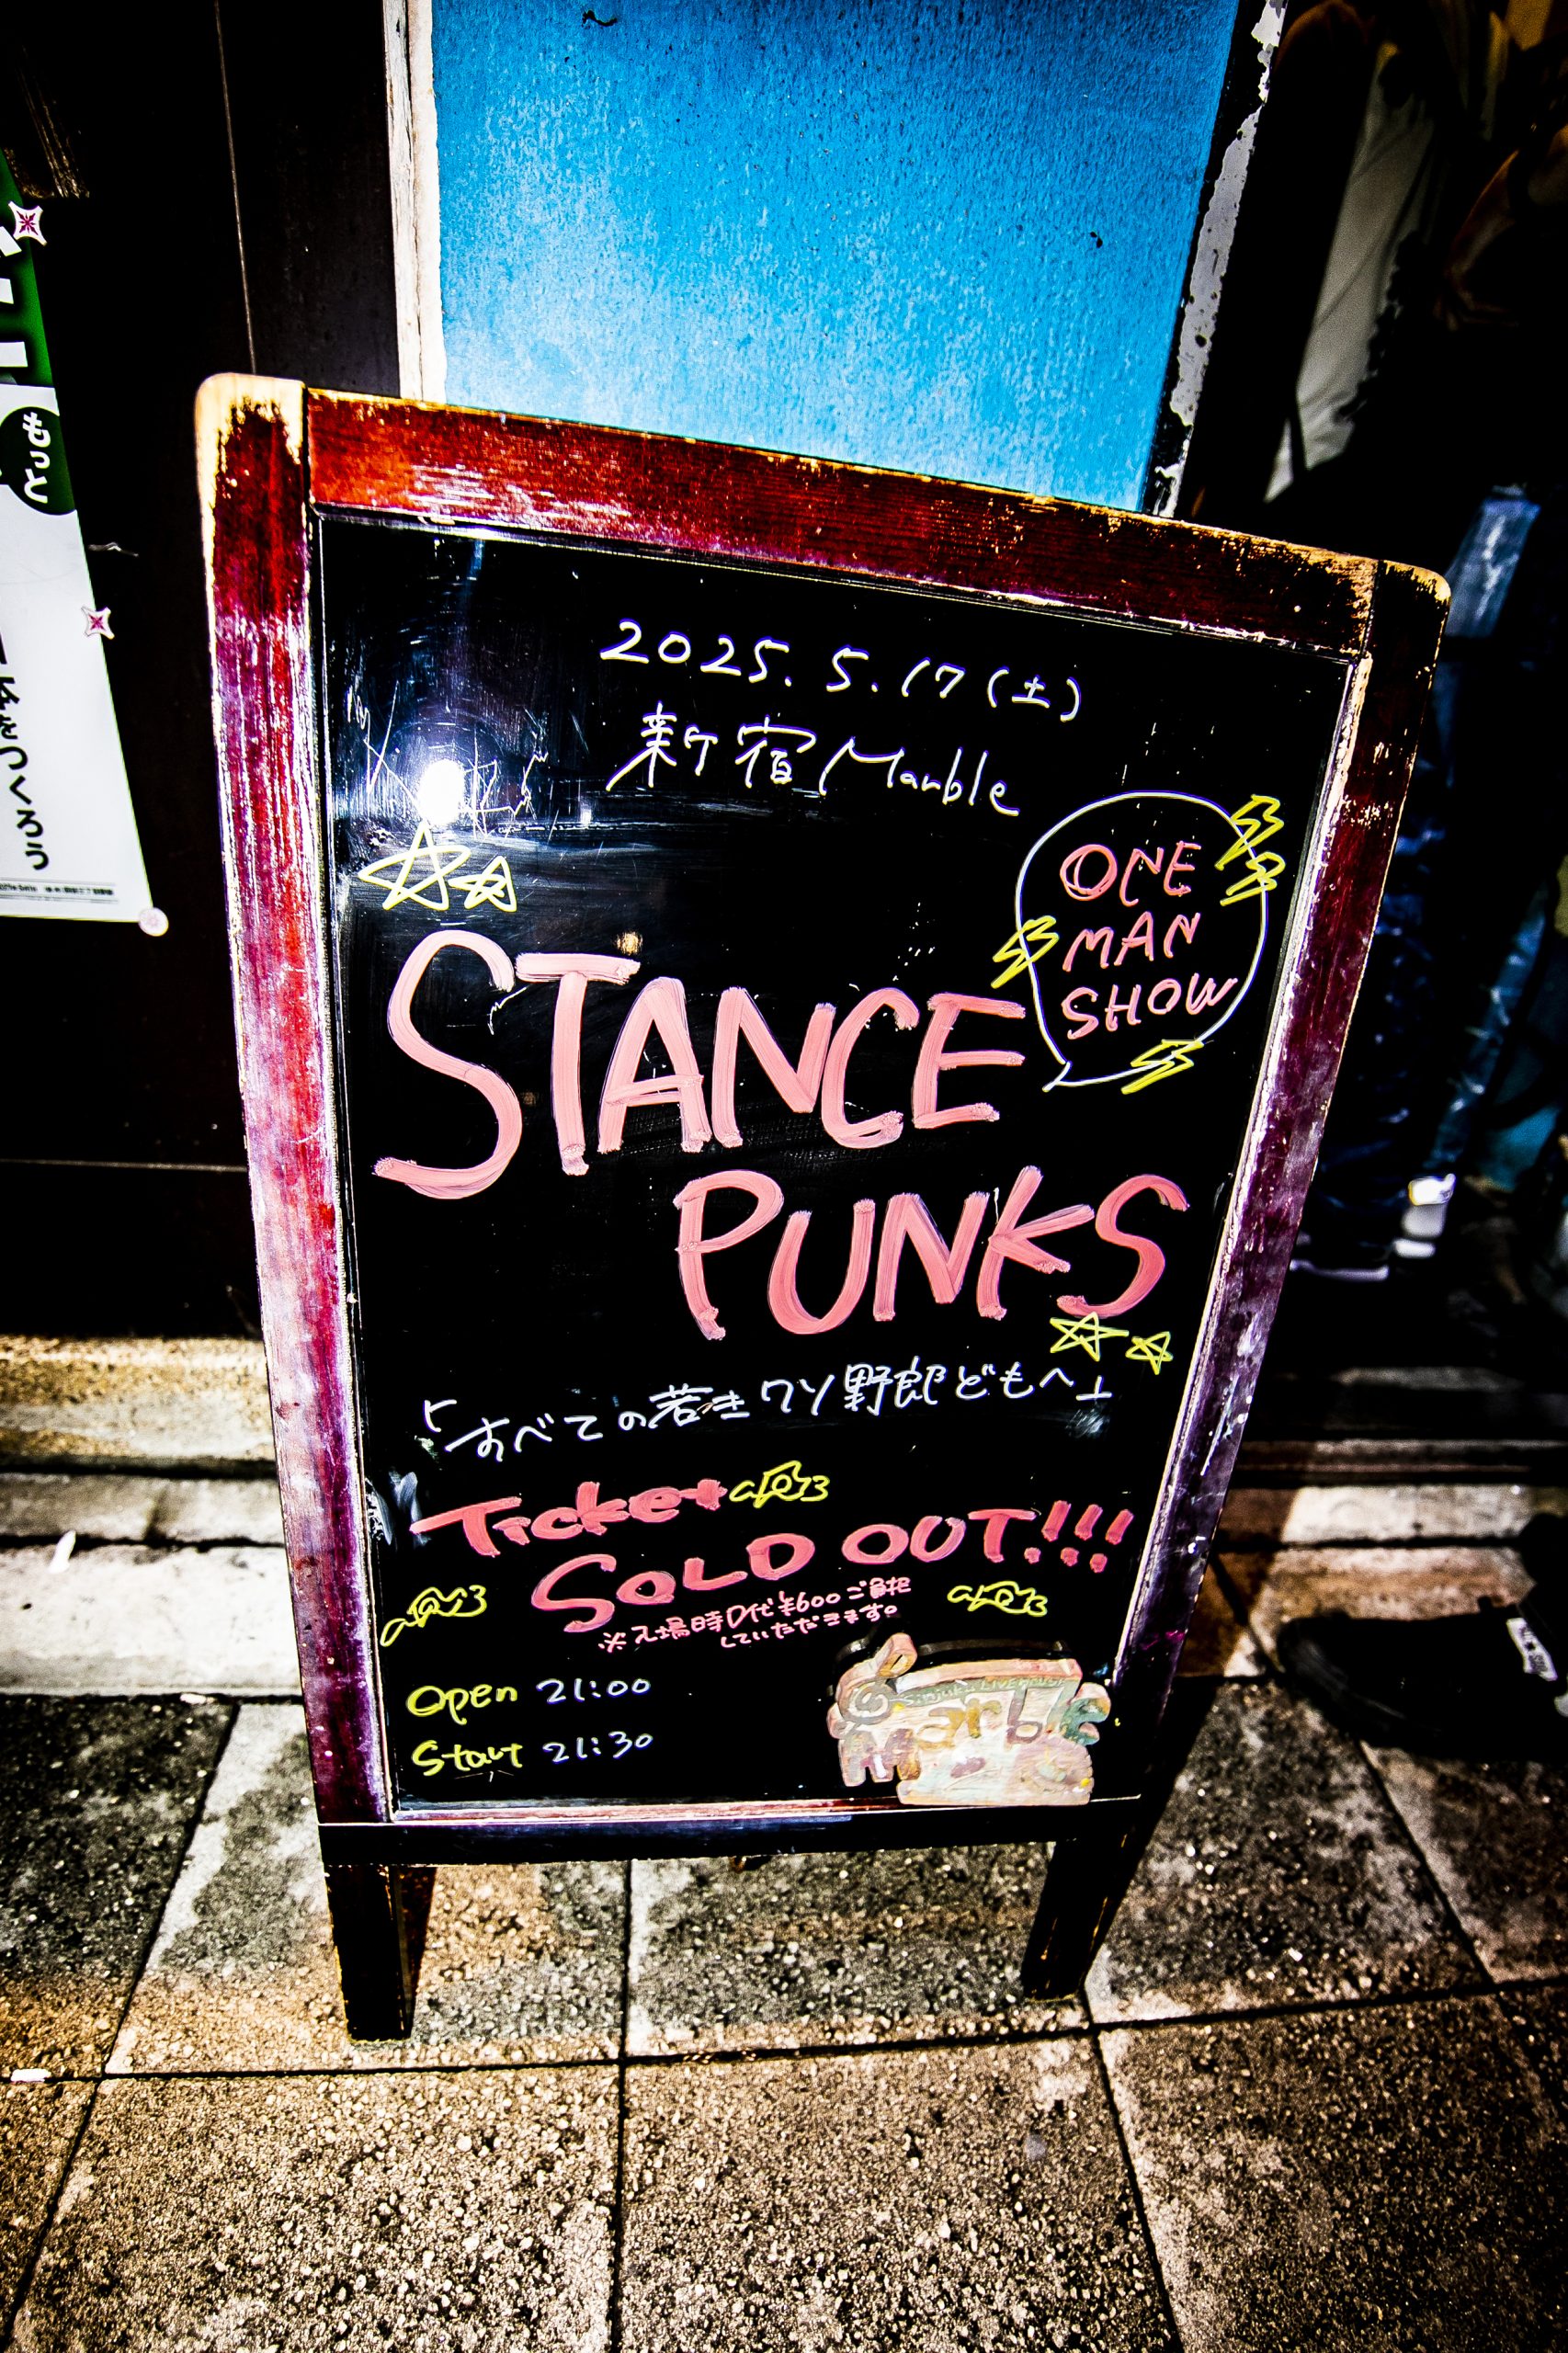 もっと
本をつくろう
2025.5.17(土)
新宿Marble
ONE
MAN
SHOW
STANCE
PUNKS
「すべての若きクソ野郎どもへ」
Ticket
SOLD OUT!!!
※入場時D代¥600ご負担
していただきます。
Open 21:00
Start 21:30
Marble